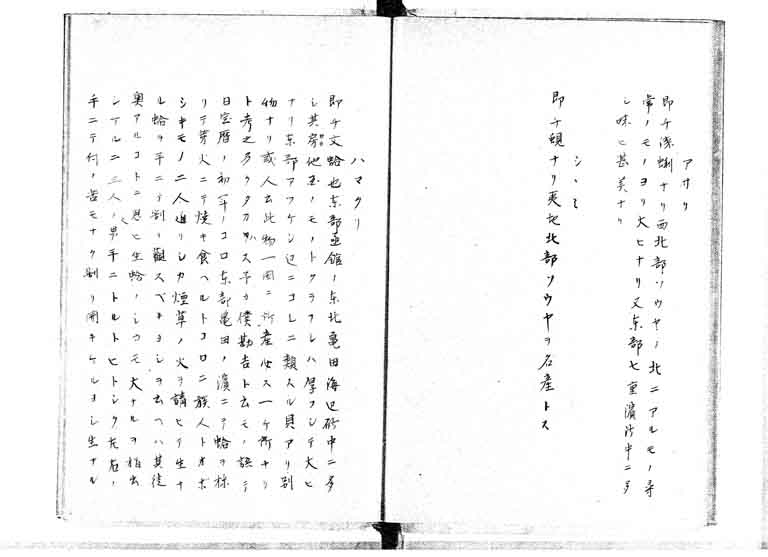 アサリ
即チ浅蜊ナリ西北部ソウヤノ北ニアルモノ尋
常ノモノヨリ大ヒナリ又東部七重濱沙中ニ多
シ味ヒ甚美ナリ
シヽミ
即チ蜆ナリ夷地北部ソウヤヲ名産トス
ハマグリ
即チ文蛤也東部箱館ノ東北亀田海辺砂中ニ多
シ其形他玉ノモノトクラフレハ厚フシテ大ヒ
ナリ東部アツケシ辺ニコレニ類スル貝アリ別
物ナリ或人云此物一国ニ所産必ス一ケ所ナリ
ト考之タクタカハス予カ僕勘吉ト云モノ語ニ
日宝暦ノ初年ノコロ東部亀田ノ濱ニテ蛤ヲ採
リテ芽火ニテ焼キ食ヘルトコロニ族人トオボ
シキモノ二人通リシカ煙草ノ火ヲ請ヒテ生ナ
ル蛤ヲ手ニテ割リ観スベキヨシヲ云ヘハ其徒
奥アルコトニ思ヒ生蛤ノシカモ大ナルヲ指出
シケルニ二人ノ男手ニトルトヒトシク左右ノ
手ニテ何ノ苦モナク割リ開キケルヨシ生ナル